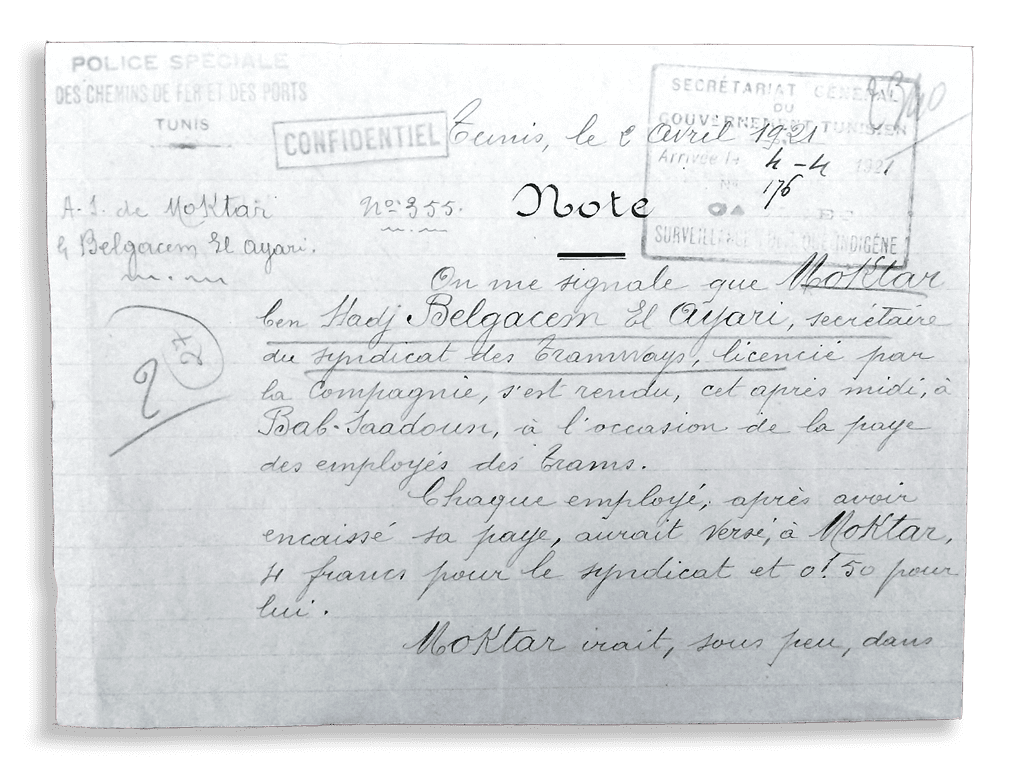 POLICE SPÉCIALE
DES CHEMINS DE FER ET DES PORTS
TUNIS
CONFIDENTIEL
Tunis, le 2 Avril 1921
SECRÉTARIAT GÉNÉRAL
DU
GOUVERNEMENT TUNISIEN
Arrivée le 4-4 1921
No 176
SURVEILLANCE INDIGÈNE
A.S. de Moktar
b Belgacem El Ayari.
No 355.
Note
On me signale que Moktar
ben Hadj Belgacem El Ayari, secrétaire
du syndicat des Tramways, licencié par
la Compagnie, s'est rendu, cet après midi, à
Bab-Saadoun, à l'occasion de la paye
des employés des Trams.
2
27
Chaque employé, après avoir
encaissé sa paye, aurait versé, à Moktar,
4 francs pour le syndicat et 0f50 pour
lui.
Moktar irait, sous peu, dans